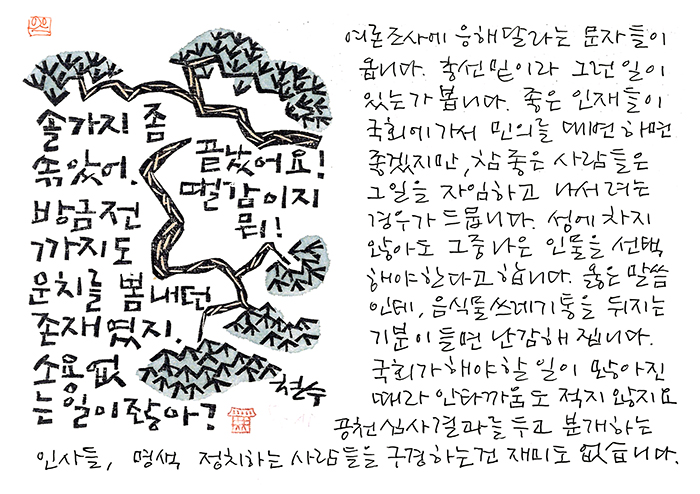 솔가지 좀
솎았어.
방금전
까지도
운치를 뽐내던
존재였지.
소용없
는 일이잖아?
끝났어요!
땔감이지
뭐!
철수
여론조사에 응해달라는 문자들이
옵니다. 총선밑이라 그런일이
있는가 봅니다. 좋은 인재들이
국회에가서 민의를 대변하면
좋겠지만, 참 좋은 사람들은
그일을 자임하고 나서려는
경우가 드뭅니다. 성에 차지
않아도 그중 나은 인물을 선택
해야한다고 합니다. 옳은 말씀
인데, 음식물쓰레기통을 뒤지는
기분이 들면 난감해 집니다.
국회가 해야할 일이 많아진
때라 안타까움도 적지 않지요
공천심사결과를 두고 분개하는
인사들, 명색 정치하는 사람들을 구경하는건 재미도 없습니다.